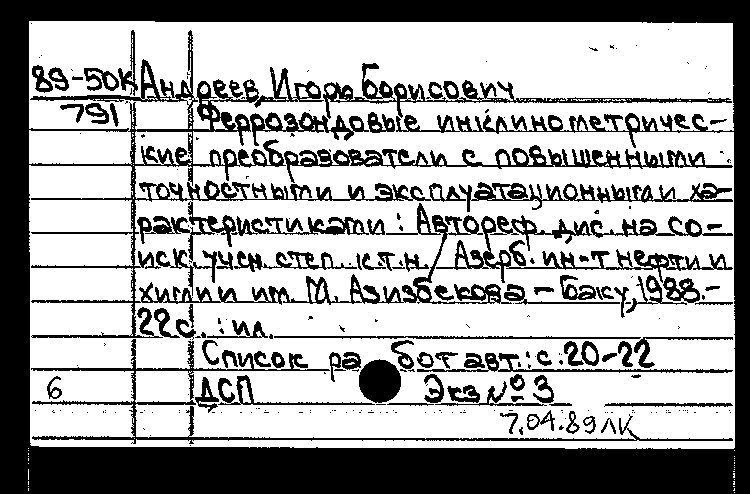 89-50К Андреев, Игорь Борисович
791 Феррозондовые инклинометричес-
кие преобразователи с повышенными
точностными и эксплуатационными ха-
рактеристиками : Автореф. дис. на со-
иск. учен. степ. к.т.н. / Азерб. ин-т нефти и
химии им. М. Азизбекова - Баку, 1988.-
22с. : ил.
Список работ авт.: с. 20-22
6 ДСП Экз № 3
7.04.89 ЛК